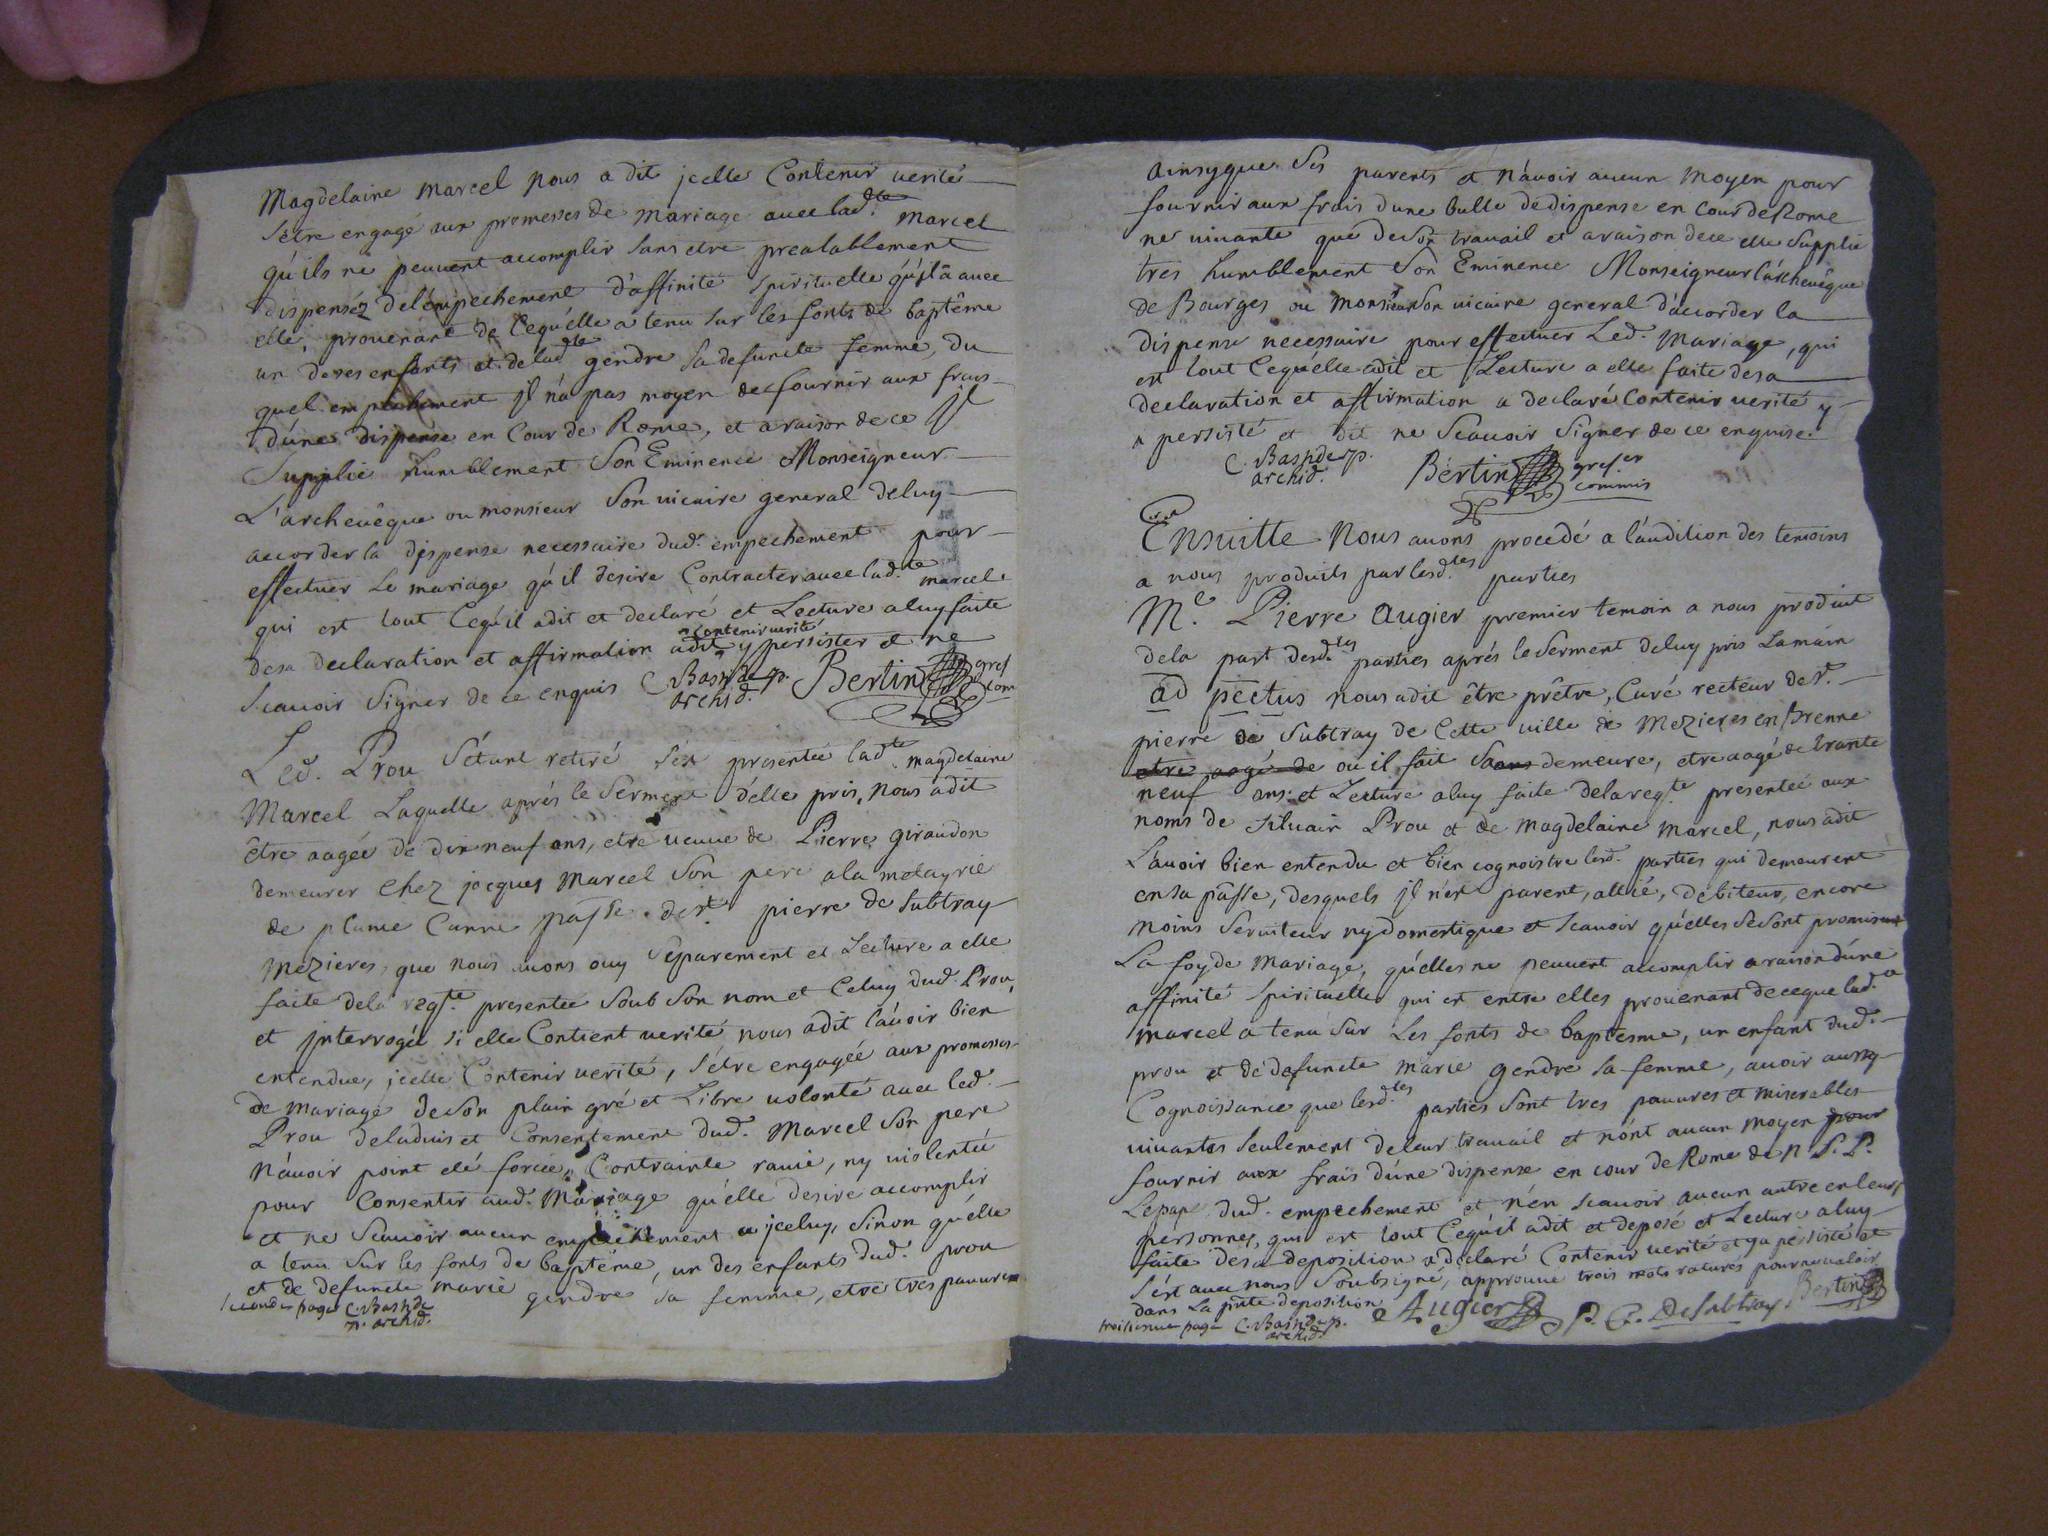 Magdelaine Marcel nous a dit jcelle Contenir verité
s'être engagé aux promesses de mariage avec lad.te Marcel
qu'ils ne peuvent accomplir sans etre prealablement
dispenséz de l'empechement d'affinité spirituelle qu'il a avec
elle, provenant de Cequ'elle a tenu sur les fonts de baptême
un de ses enfants et de lad.te gendre sa defuncte femme, du
quel empechement jl n'a pas moyen de fournir aux frais
d'une dispense en Cour de Rome, et a raison de ce jl
Supplie humblement Son Eminence Monseigneur
L'archevêque ou monsieur Son vicaire general deluy
accorder la dispense necessaire dud. empechement pour
effectuer Le mariage qu'il desire Contracter avec lad.te marcel
qui est tout Cequ'il a dit et declaré et Lecture a luy faite
desa declaration et affirmation a dit contenir verité y persister et ne
Scavoir Signer de ce enquis C. Basnde p. archid. Bertin gref com
Led. Prou s'étant retiré s'est presentée lad.te magdelaine
Marcel Laquelle aprés le Serment d'elle pris, nous a dit
être aagée de dix neuf ans, etre veuve de Pierre giraudon
demeurer Chez jacques Marcel Son pere a la metayrie
de plume Canne passe de st. pierre de Subtray
Mezieres, que nous avons ouy Separement et Lecture a elle
faite dela reqte. presentée Soub Son nom et Celuy dud. Prou,
et jnterrogée si elle Contient verité nous a dit l'avoir bien
entendue, jcelle Contenir verité, s'être engagée aux promesses
de Mariage de Son plain gré et Libre volonté avec led.
Prou de l'advis et Consentement dud. Marcel Son pere
N'avoir point eté forcée, Contrainte ravie, ny violentée
pour Consentir aud. Mariage qu'elle desire accomplir
et ne Scavoir aucun empechement a jceluy, Sinon qu'elle
a tenu Sur les fonts de baptéme, un des enfants dud. prou
et de defuncte marie gendre sa femme, etre tres pauvre
seconde page C. Basnde
p. archid.
ainsyque Ses parents et N'avoir aucun moyen pour
fournir aux frais d'une bulle de dispense en Cour de Rome
ne vivante que de Son travail et a raison de ce elle Supplie
tres humblement Son Eminence Monseigneur l'archevêque
de Bourges ou Monsieur Son vicaire general d'accorder la
dispense necessaire pour effectuer Led. Mariage, qui
est tout Cequ'elle a dit et Lecture a elle faite de sa
declaration et affirmation a declaré Contenir verité y
a persisté et dit ne Scavoir Signer de ce enquise.
C. Basnde p. archid. Bertin grefer commis
Ensuitte Nous avons procedé a l'audition des temoins
a nous produits par lesd.tes parties
Me. Pierre Augier premier temoin a nous produit
dela part desd.tes parties aprés le Serment deluy pris La main
ad pectus nous a dit être prêtre, Curé recteur de st.
pierre de Subtray de Cette ville de Mezieres en brenne
etre aagé de ou il fait Sa demeure, etre aagé de trante
neuf ans et Lecture a luy faite dela reqte. presentée aux
noms de Silvain Prou et de Magdelaine Marcel, nous a dit
Lavoir bien entendu et bien cognoistre lesd. parties qui demeurent
en sa pâsse, desquels jl n'est parent, allié, debiteur, encore
moins Serviteur ny domestique et Scavoir qu'elles Se sont promis
La foy de Mariage, qu'elles ne peuvent accomplir a raison d'une
affinité Spirituelle qui est entre elles provenant de ceque lad.te
Marcel a tenu Sur Les fonts de baptesme, un enfant dud.
prou et de defuncte Marie gendre Sa femme, avoir aussy
Cognoissance que lesd.tes parties Sont tres pauvres et miserables
vivantes Seulement de leur travail et n'ont aucun moyen pour
fournir aux frais d'une dispense en cour de Rome de N. S. P.
Le pape dud. empechement et n'en Scavoir aucun autre en leurs
personnes, qui est tout Cequ'il a dit et deposé et Lecture a luy
faite desa deposition a declaré Contenir verité et y a persisté et
s'est avec nous Soubsigné, approuve trois mots raturés pour ne valoir
dans La pnte deposition Augier P. C. De Subtray Bertin
troisieme page C. Basnde p.
archid.